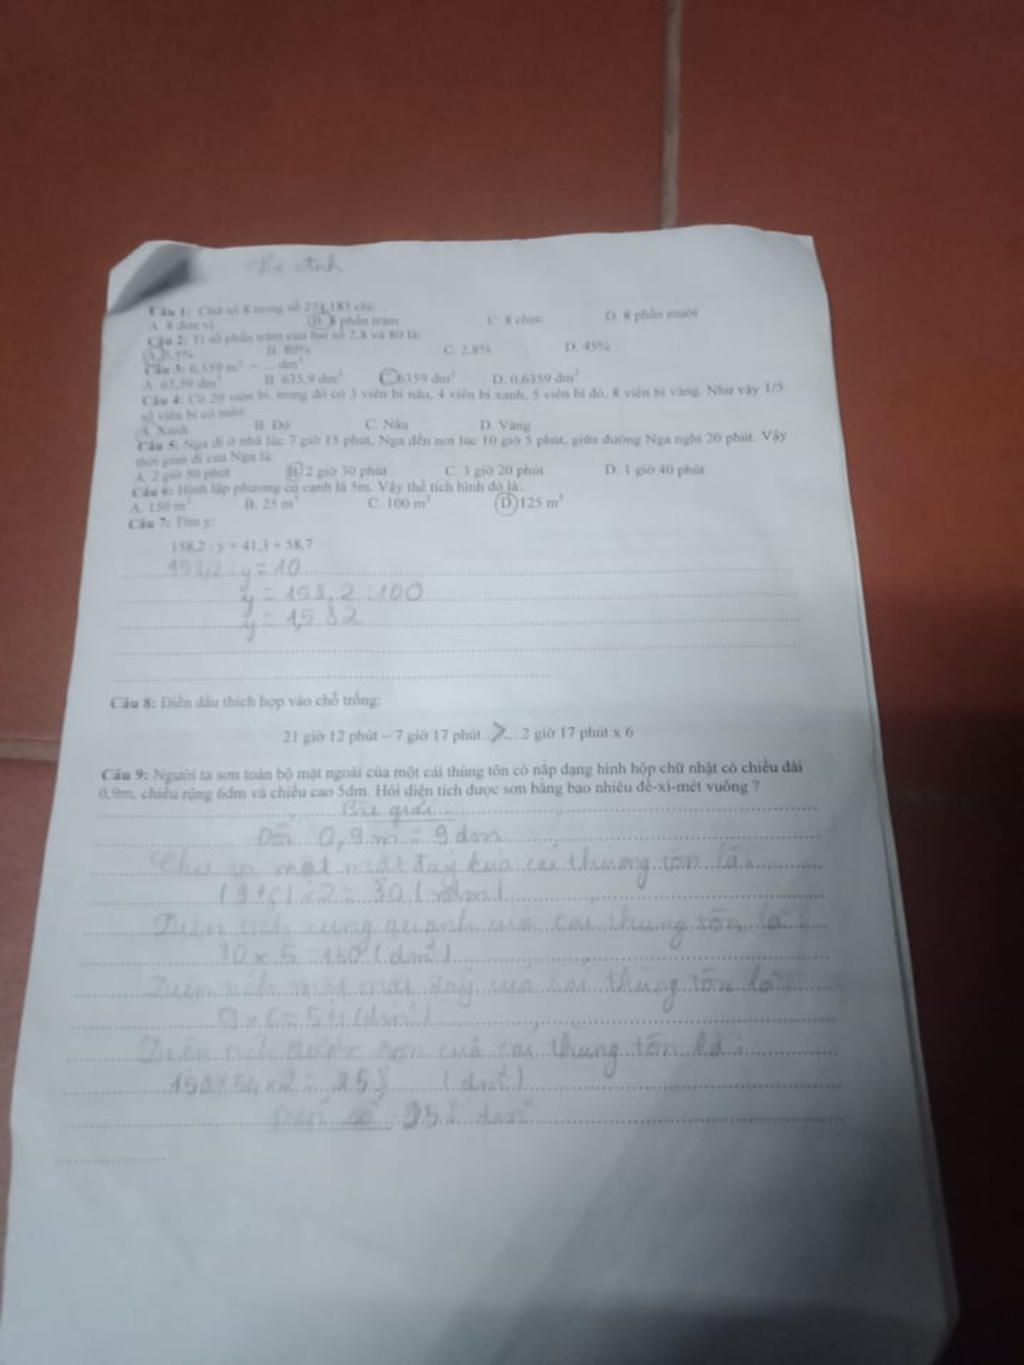 Câu 1: Chữ số 8 trong số 274,183 chỉ:
A. 8 đơn vị B. 8 phần trăm C. 8 chục D. 8 phần mười
Câu 2: Tỉ số phần trăm của hai số 2,8 và 80 là:
A. 3,5% B. 80% C. 2,8% D. 45%
Câu 3: 6,359 m³ = ... dm³
A. 63,59 dm³ B. 635,9 dm³ C. 6359 dm³ D. 0,6359 dm³
Câu 4: Có 20 viên bi, trong đó có 3 viên bi nâu, 4 viên bi xanh, 5 viên bi đỏ, 8 viên bi vàng. Như vậy 1/5
số viên bi có màu:
A. Xanh B. Đỏ C. Nâu D. Vàng
Câu 5: Nga đi ở nhà lúc 7 giờ 15 phút, Nga đến nơi lúc 10 giờ 5 phút, giữa đường Nga nghỉ 20 phút. Vậy
thời gian đi của Nga là:
A. 2 giờ 50 phút B. 2 giờ 30 phút C. 3 giờ 20 phút D. 1 giờ 40 phút
Câu 6: Hình lập phương có cạnh là 5m. Vậy thể tích hình đó là:
A. 150 m³ B. 25 m³ C. 100 m³ D. 125 m³
Câu 7: Tìm y:
158,2 : y = 41,3 + 58,7
158,2 : y = 10
y = 158,2 : 100
y = 1,582
Câu 8: Điền dấu thích hợp vào chỗ trống:
21 giờ 12 phút – 7 giờ 17 phút..>...2 giờ 17 phút x 6
Câu 9: Người ta sơn toàn bộ mặt ngoài của một cái thùng tôn có nắp dạng hình hộp chữ nhật có chiều dài
0,9m, chiều rộng 6dm và chiều cao 5dm. Hỏi diện tích được sơn bằng bao nhiêu đề-xi-mét vuông ?
Bài giải
Đổi 0,9 m = 9 dm
Chu vi một mặt đáy của cái thùng tôn là:
(9 + 6) x 2 = 30 (dm)
Diện tích xung quanh của cái thùng tôn là:
30 x 5 = 150 (dm²)
Diện tích một mặt đáy của cái thùng tôn là:
9 x 6 = 54 (dm²)
Diện tích được sơn của cái thùng tôn là:
150 + 54 x 2 = 258 (dm²)
Đáp số 258 dm²